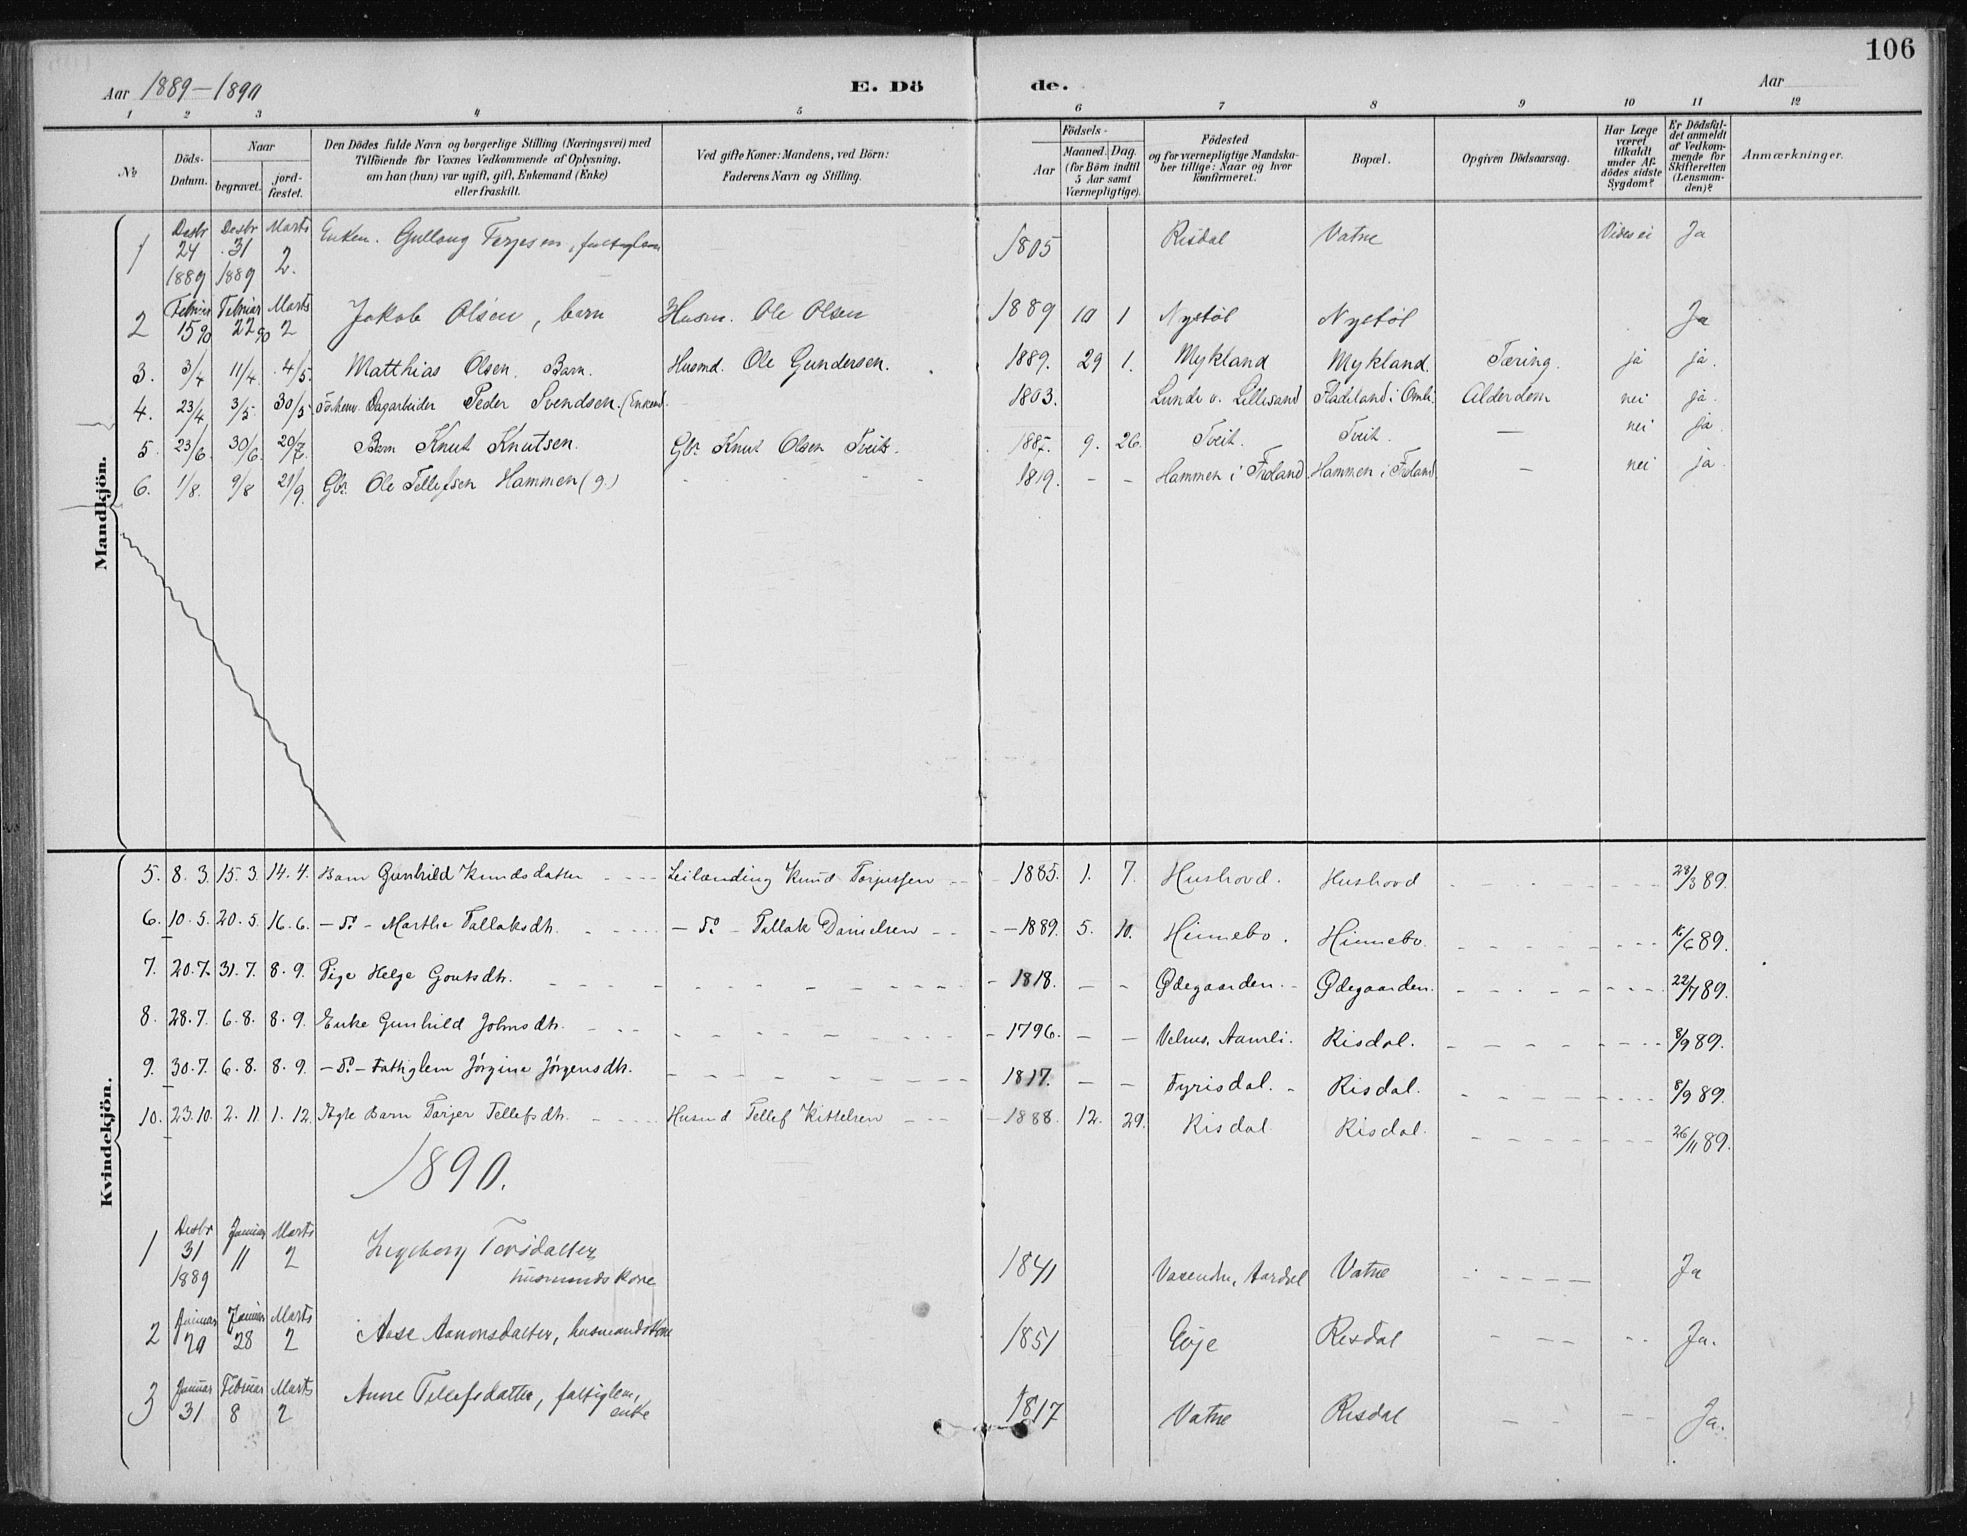 106
Aar 1889–1890 E. Dö de. Aar
1 2 3 4 5 6 7 8 9 10 11 12
No
Döds-Datum.
Naar
begravet.
jord-fæstet.
Den Dödes fulde Navn og borgerlige Stilling (Næringsvei) med
Tilföiende for Voxnes Vedkommende af Oplysning,
om han (hun) var ugift, gift, Enkemand (Enke)
eller fraskilt.
Ved gifte Koner: Mandens, ved Börn:
Faderens Navn og Stilling.
Födsels-
Aar
Maaned. Dag.
(for Börn indtil
5 Aar samt
Værnepligtige).
Födested
og for værnepligtige Mandska-
ber tillige: Naar og hvor
konfirmeret.
Bopæl.
Opgiven Dödsaarsag.
Har Læge
været
tilkaldt
under Af-
dödes sidste
Sygdom?
Er Dödsfal-
det anmeldt
af Vedkom-
mende for
Skifteretten
(Lensman-
den)?
Anmærkninger.
Mandkjön.
1 Desbr 24 1889 Desbr 31 1889 Marts 2. Enkem. Gullaug Terjesen, fattiglem 1805 Risdal Vatne Vides ei Ja
2 Februar 15 90 Februar 22 90 Marts 2 Jakob Olsen, barn Husm. Ole Olsen 1889 10 1 Nystøl Nystøl Ja
3. 3/4 11/4. 4/5. Matthias Olsen. Barn. Husmd. Ole Gundersen. 1889. 29 1. Mykland Mykland. Tæring. ja ja.
4. 23/4 3/5. 30/3 Dagarbeider Peder Svendsen. (Enkemd. 1803. Lunde v. Lillesand i Omli. Alderdom nei ja.
5. 23/6. 30/6. 20/7. Barn Knut Knutsen. Gbr. Knut Olsen Tveit. 1887. 9. 26. Tveit. Tveit. — nei ja.
6. 1/8. 9/8 21/9. Gbr. Ole Tellefsen Hammen (g.) 1819. – – Hammen i Froland. Hammen i Froland. – nei ja.
Kvindekjön.
5. 8. 3. 15. 3. 14. 4. Barn Gunhild Knudsdatter Leilænding Knud Torjussen 1885. 1. 7. Hushovd. Hushovd 28/3 89.
6. 10. 5. 20. 5. 16. 6. – Do – Marthe Tallaksdtr. – Do – Tallak Danielsen 1889. 5. 10. Hinnebo. Hinnebo. 16/6 89.
7. 20. 7. 31. 7. 8. 9. Pige Helge Goutsdtr. 1818. – – Ødegaarden. Ødegaarden. 22/7 89.
8. 28. 7. 6. 8. 8. 9. Enke Gunhild Johnsdtr. 1796. – – Aamli. Risdal. 8/9 89.
9. 30. 7. 6. 8. 8. 9. – Do – Fattiglem Jørgine Jørgensdtr. 1817. – – Fyrisdal. Risdal. 8/9 89.
10. 23. 10. 2. 11. 1. 12. Ægte Barn Torjer Tellefsdtr. Husmd Tellef Kittelsen 1888. 12. 29. Risdal Risdal. 26/11 89.
1890.
1 Desbr 31 1889 Januar 11 Marts 2 Ingeborg Torsdatter
husmands kone 1841 Vasenden, Aardal Vatne Ja
2 Januar 20 Januar 28 Marts 2 Aase Aanonsdatter, husmandskone 1851 Evje Risdal Ja.
3 Januar 31 Februar 8 Marts 2 Anne Tellefsdatter, fattiglem,
enke 1817 Vatne Risdal Ja.